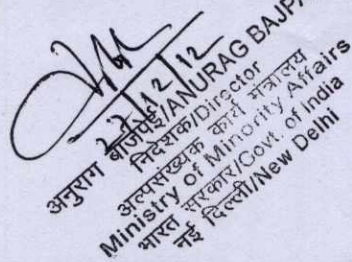 12/12
अनुराग बाजपेई/ANURAG BAJPA
निदेशक/Director
अल्पसंख्यक कार्य मंत्रालय
Ministry of Minority Affairs
भारत सरकार/Govt. of India
नई दिल्ली/New Delhi